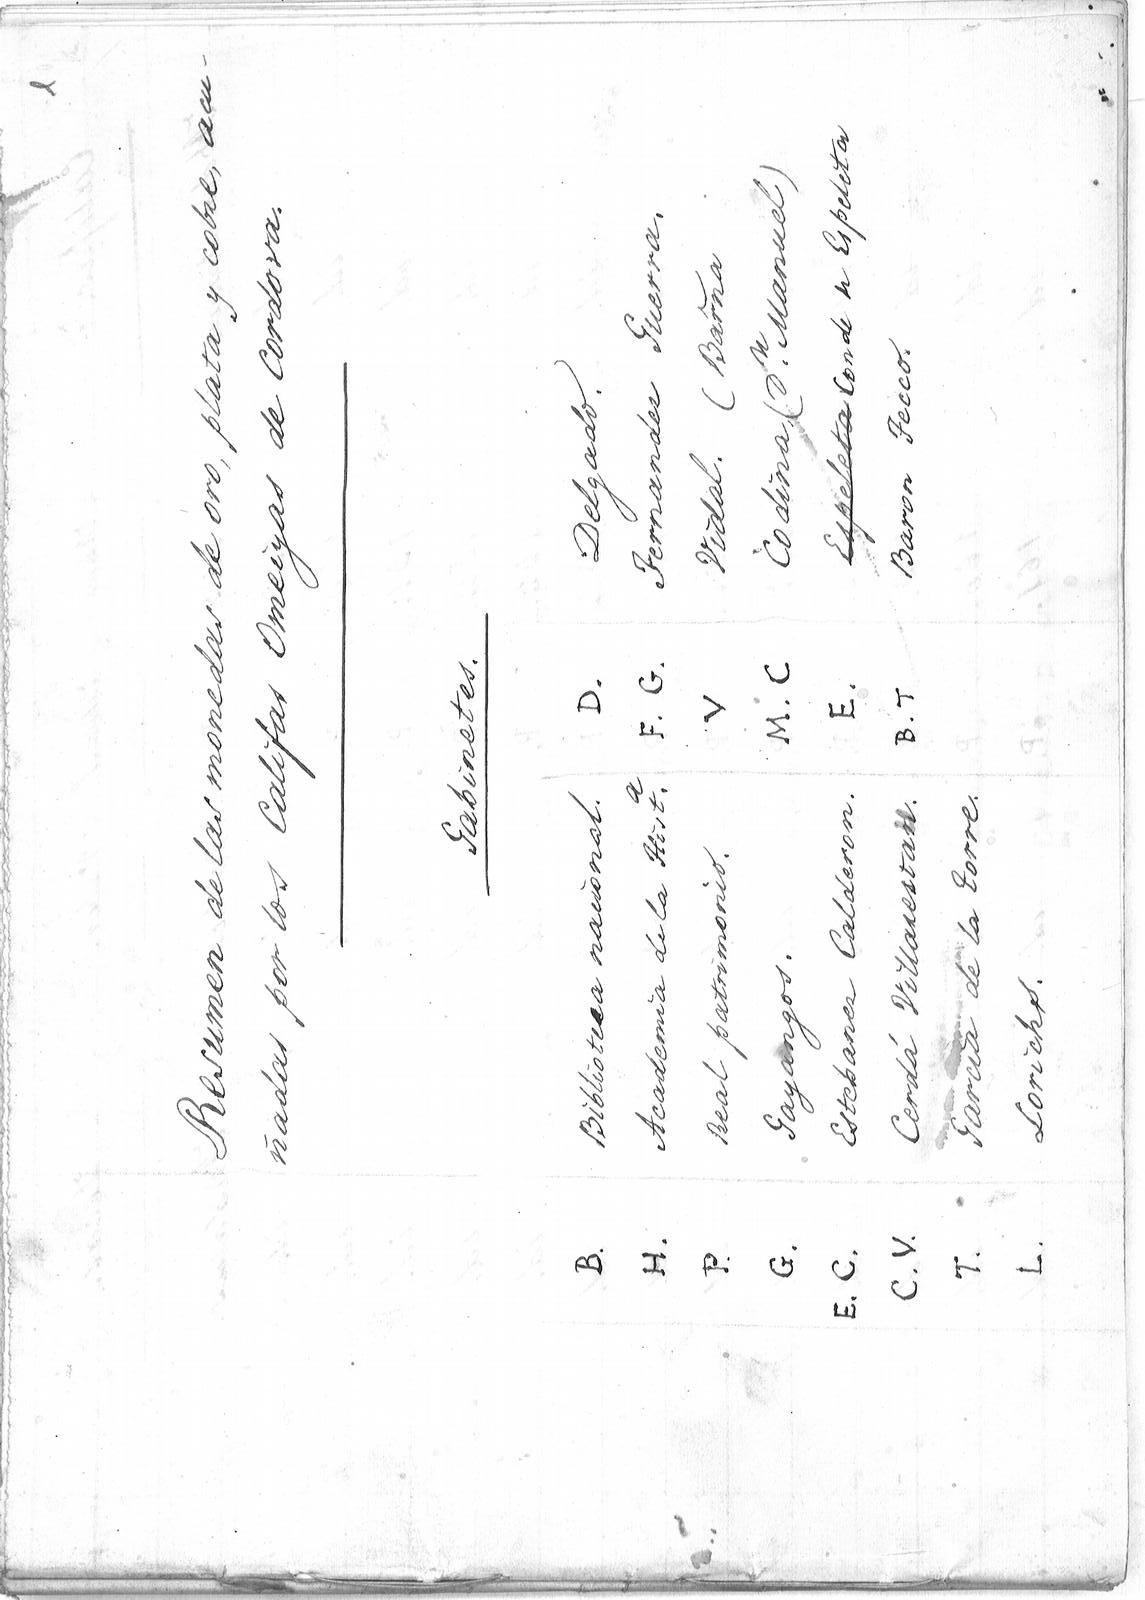 1
Resumen de las monedas de oro, plata y cobre, acu-
ñadas por los Califas Omeiyas de Cordova.
Gabinetes.
B. Biblioteca nacional. D. Delgado.
H. Academia de la Hist.ª F. G. Fernandez Guerra.
P. Real patrimonio. V Vidal. (Barña
G. Gayangos. M. C Codina, (D.n Manuel)
E. C. Estebanez Calderon. E. Espeleta Conde de Espeleta
C. V. Cerdá Villarestan. B. T Baron Tecco.
T. Garcia de la Torre.
L. Lorichs.